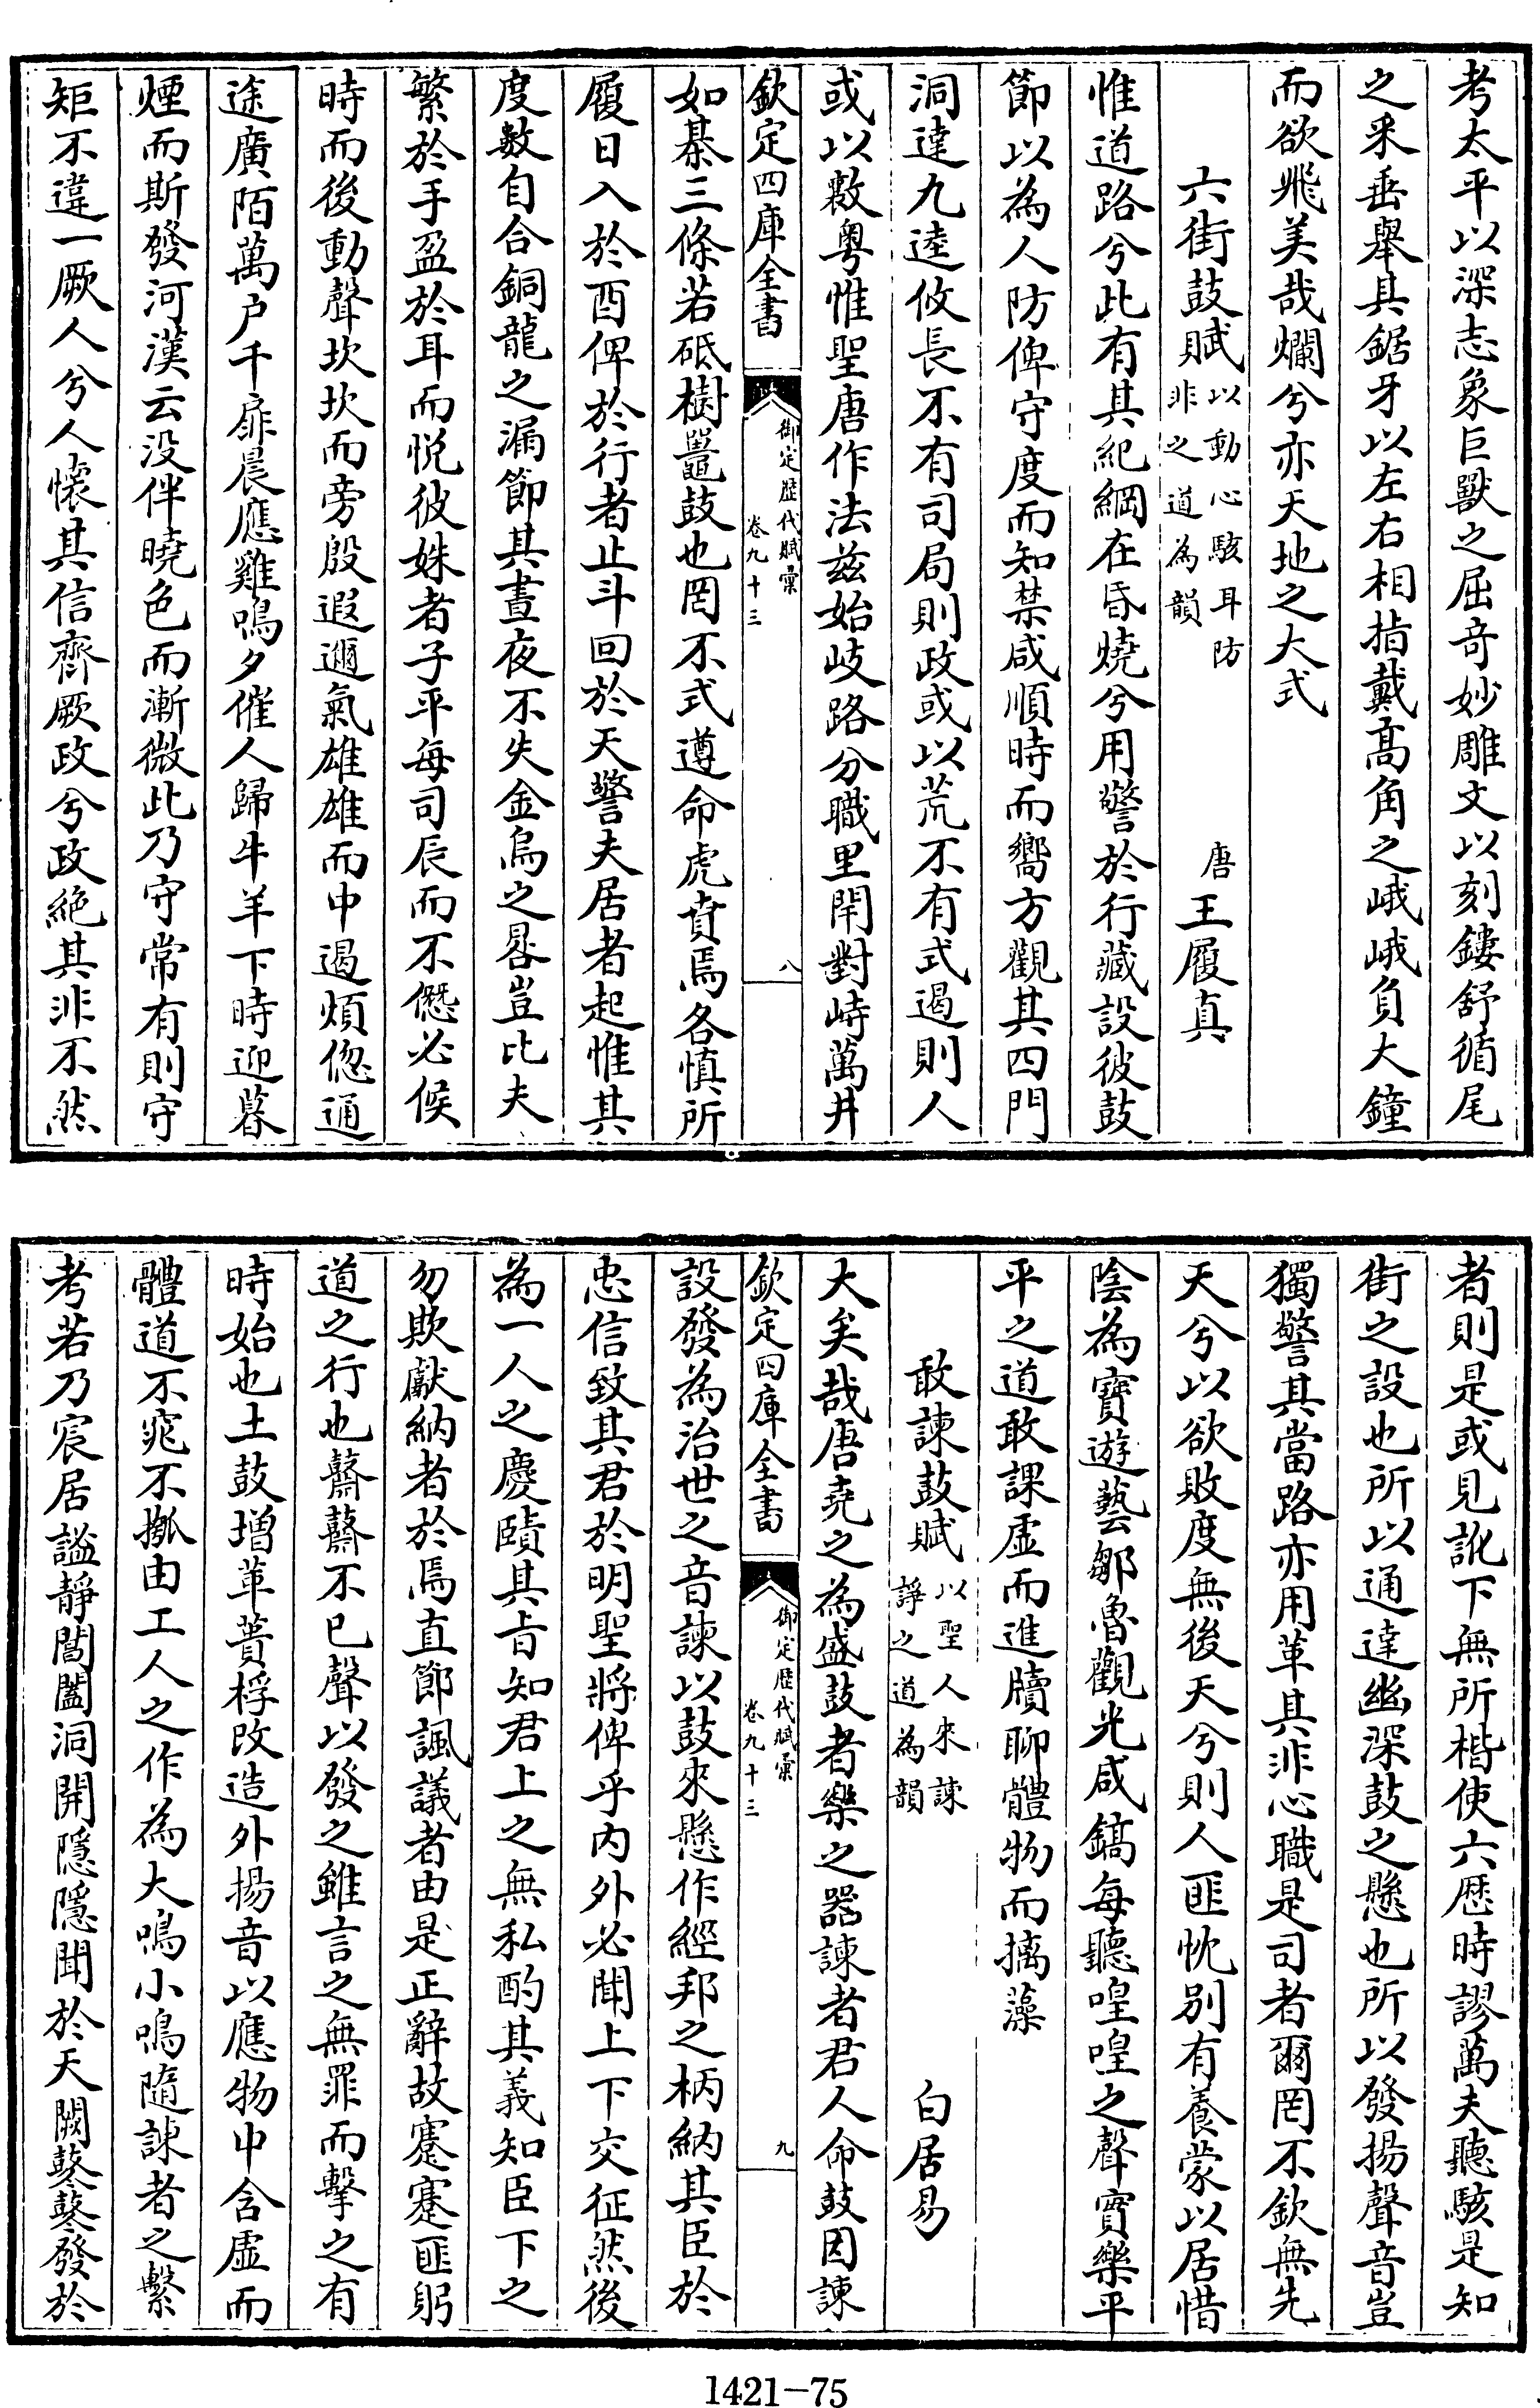 考太平以深志象巨獸之屈奇妙雕文以刻鏤舒循尾
之采垂舉其鋸牙以左右相指戴高角之峨峨負大鐘
而欲飛美哉爛兮亦天地之大式
六街鼓賦以動心駭耳防非之道為韻 唐王履真
惟道路兮此有其紀綱在昏燒兮用警於行藏設彼鼓
節以為人防俾守度而知禁咸順時而嚮方觀其四門
洞達九逵攸長不有司局則政或以荒不有式遏則人
或以敷粤惟聖唐作法兹始岐路分職里閈對峙萬井
欽定四庫全書 御定歴代賦彚 卷九十三 八
如棊三條若砥樹鼉鼓也罔不式遵命虎賁焉各慎所
履日入於酉俾於行者止斗回於天警夫居者起惟其
度數自合銅龍之漏節其晝夜不失金烏之晷豈比夫
繁於手盈於耳而悦彼姝者子平每司辰而不僭必候
時而後動聲坎坎而旁殷遐邇氣雄雄而中遏煩惚通
途廣陌萬户千扉晨應雞鳴夕催人歸牛羊下時迎暮
煙而斯發河漢云没伴曉色而漸微此乃守常有則守
矩不違一厥人兮人懷其信齊厥政兮政絶其非不然
者則是或見訛下無所楷使六歴時謬萬夫聽駭是知
街之設也所以通達幽深鼓之懸也所以發揚聲音豈
獨警其當路亦用革其非心職是司者爾罔不欽無先
天兮以欲敗度無後天兮則人匪忱别有養蒙以居惜
陰為寶遊藝鄒魯觀光咸鎬每聽喤喤之聲實樂平
平之道敢課虚而進牘聊體物而摛藻
敢諫鼓賦以聖人來諫諍之道為韻 白居易
大矣哉唐堯之為盛鼓者樂之器諫者君人命鼓因諫
欽定四庫全書 御定歴代賦彚 卷九十三 九
設發為治世之音諫以鼓來懸作經邦之柄納其臣於
忠信致其君於明聖將俾乎内外必聞上下交征然後
為一人之慶賾其㫖知君上之無私酌其義知臣下之
勿欺獻納者於焉直節諷議者由是正辭故蹇蹇匪躬
道之行也鼛鼛不已聲以發之雖言之無罪而擊之有
時始也土鼓增革蕢桴改造外揚音以應物中含虚而
體道不窕不摦由工人之作為大鳴小鳴隨諫者之繫
考若乃宸居謐靜閶闔洞開隱隱聞於天闕鼕鼕發於
1421-75